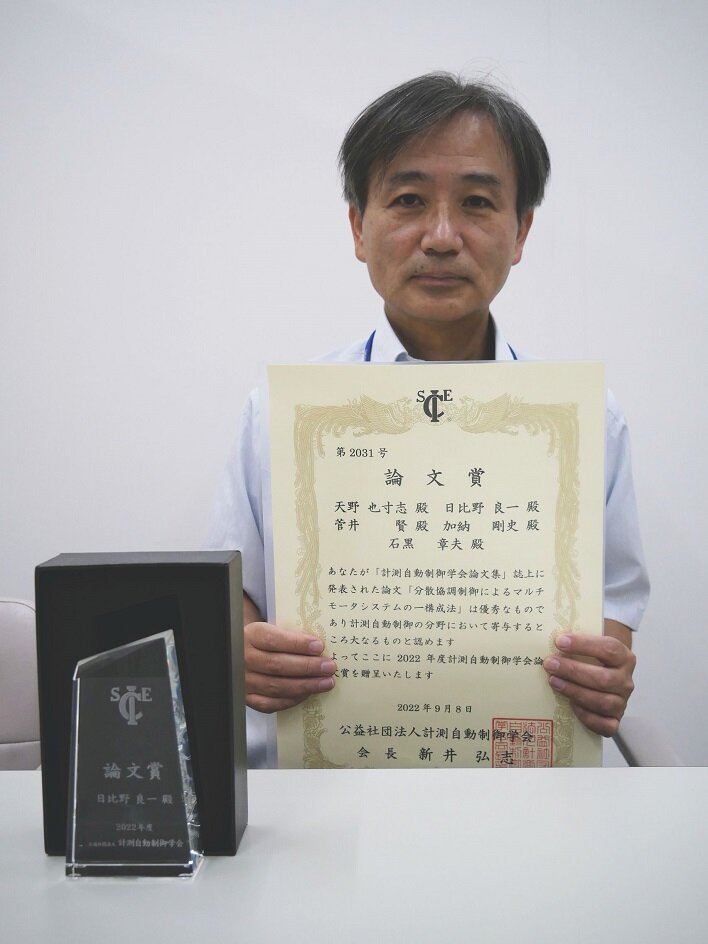 SICE
第2031号
論文賞
天野 也寸志 殿 日比野 良一 殿
菅井 賢 殿 加納 剛史 殿
石黒 章夫 殿
あなたが「計測自動制御学会論文集」誌上に
発表された論文「分散協調制御によるマルチ
モータシステムの一構成法」は優秀なもので
あり計測自動制御の分野において寄与すると
ころ大なるものと認めます
よってここに 2022 年度計測自動制御学会論
文賞を贈呈いたします
2022年9月8日
公益社団法人計測自動制御学会
会長 新井弘志
SICE
論文賞
日比野 良一 殿
2022年度
公益社団法人 計測自動制御学会